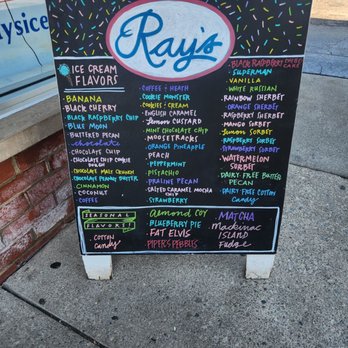 ysice
Ray's
ICE CREAM
FLAVORS
BANANA
BLACK CHERRY
BLACK RASPBERRY CHIP
BLUE MOON
BUTTERED PECAN
chocolate
CHOCOLATE CHIP
CHOCOLATE CHIP COOKIE
DOUGH
CHOCOLATE MALT CRUNCH
CHOCOLATE PEANUT BUTTER
CINNAMON
COCONUT
COFFEE
COFFEE + HEATH
COOKIE MONSTER
COOKIES + CREAM
ENGLISH CARAMEL
Lemon CUSTARD
MINT CHOCOLATE CHIP
MOOSETRACKS
ORANGE PINEAPPLE
PEACH
PEPPERMINT
PISTACHIO
PRALINE PECAN
SALTED CARAMEL MOCHA
CHIP
STRAWBERRY
BLACK RASPBERRY
CAKE
SUPERMAN
VANILLA
WHITE RUSSIAN
RAINBOW SHERBET
ORANGE SHERBET
RASPBERRY SHERBET
MANGO SORBET
Lemon SORBET
RASPBERRY SORBET
STRAWBERRY SORBET
WATERMELON
SORBET
DAIRY FREE BUTTER
PECAN
DAIRY FREE COTTON
Candy
SEASONAL
FLAVORS
COTTON
Candy
Almond COY
BLUEBERRY PIE
FAT ELVIS
PIPER'S PEBBLES
MATCHA
Mackinac
ISLAND
Fudge